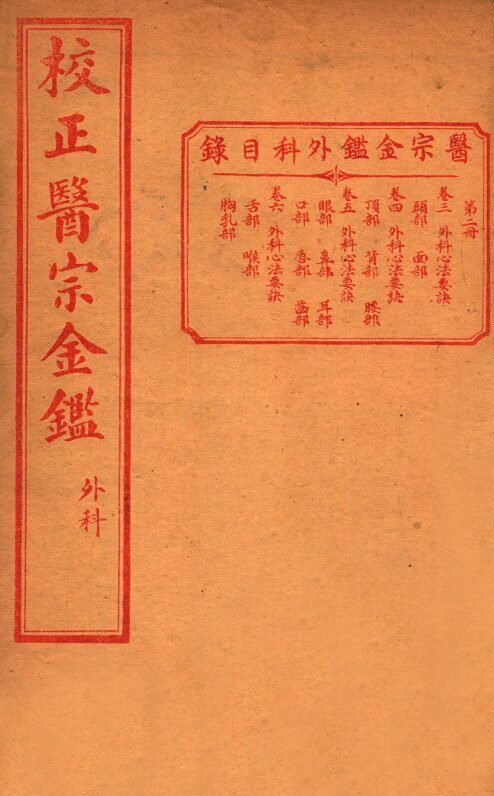 校正醫宗金鑑
外科
醫宗金鑑外科目錄
第二冊
卷三 外科心法要訣
頭部 面部
卷四 外科心法要訣
頂部 背部 腰部
卷五 外科心法要訣
眼部 鼻部 耳部
口部 唇部 齒部
卷六 外科心法要訣
舌部 喉部
胸乳部